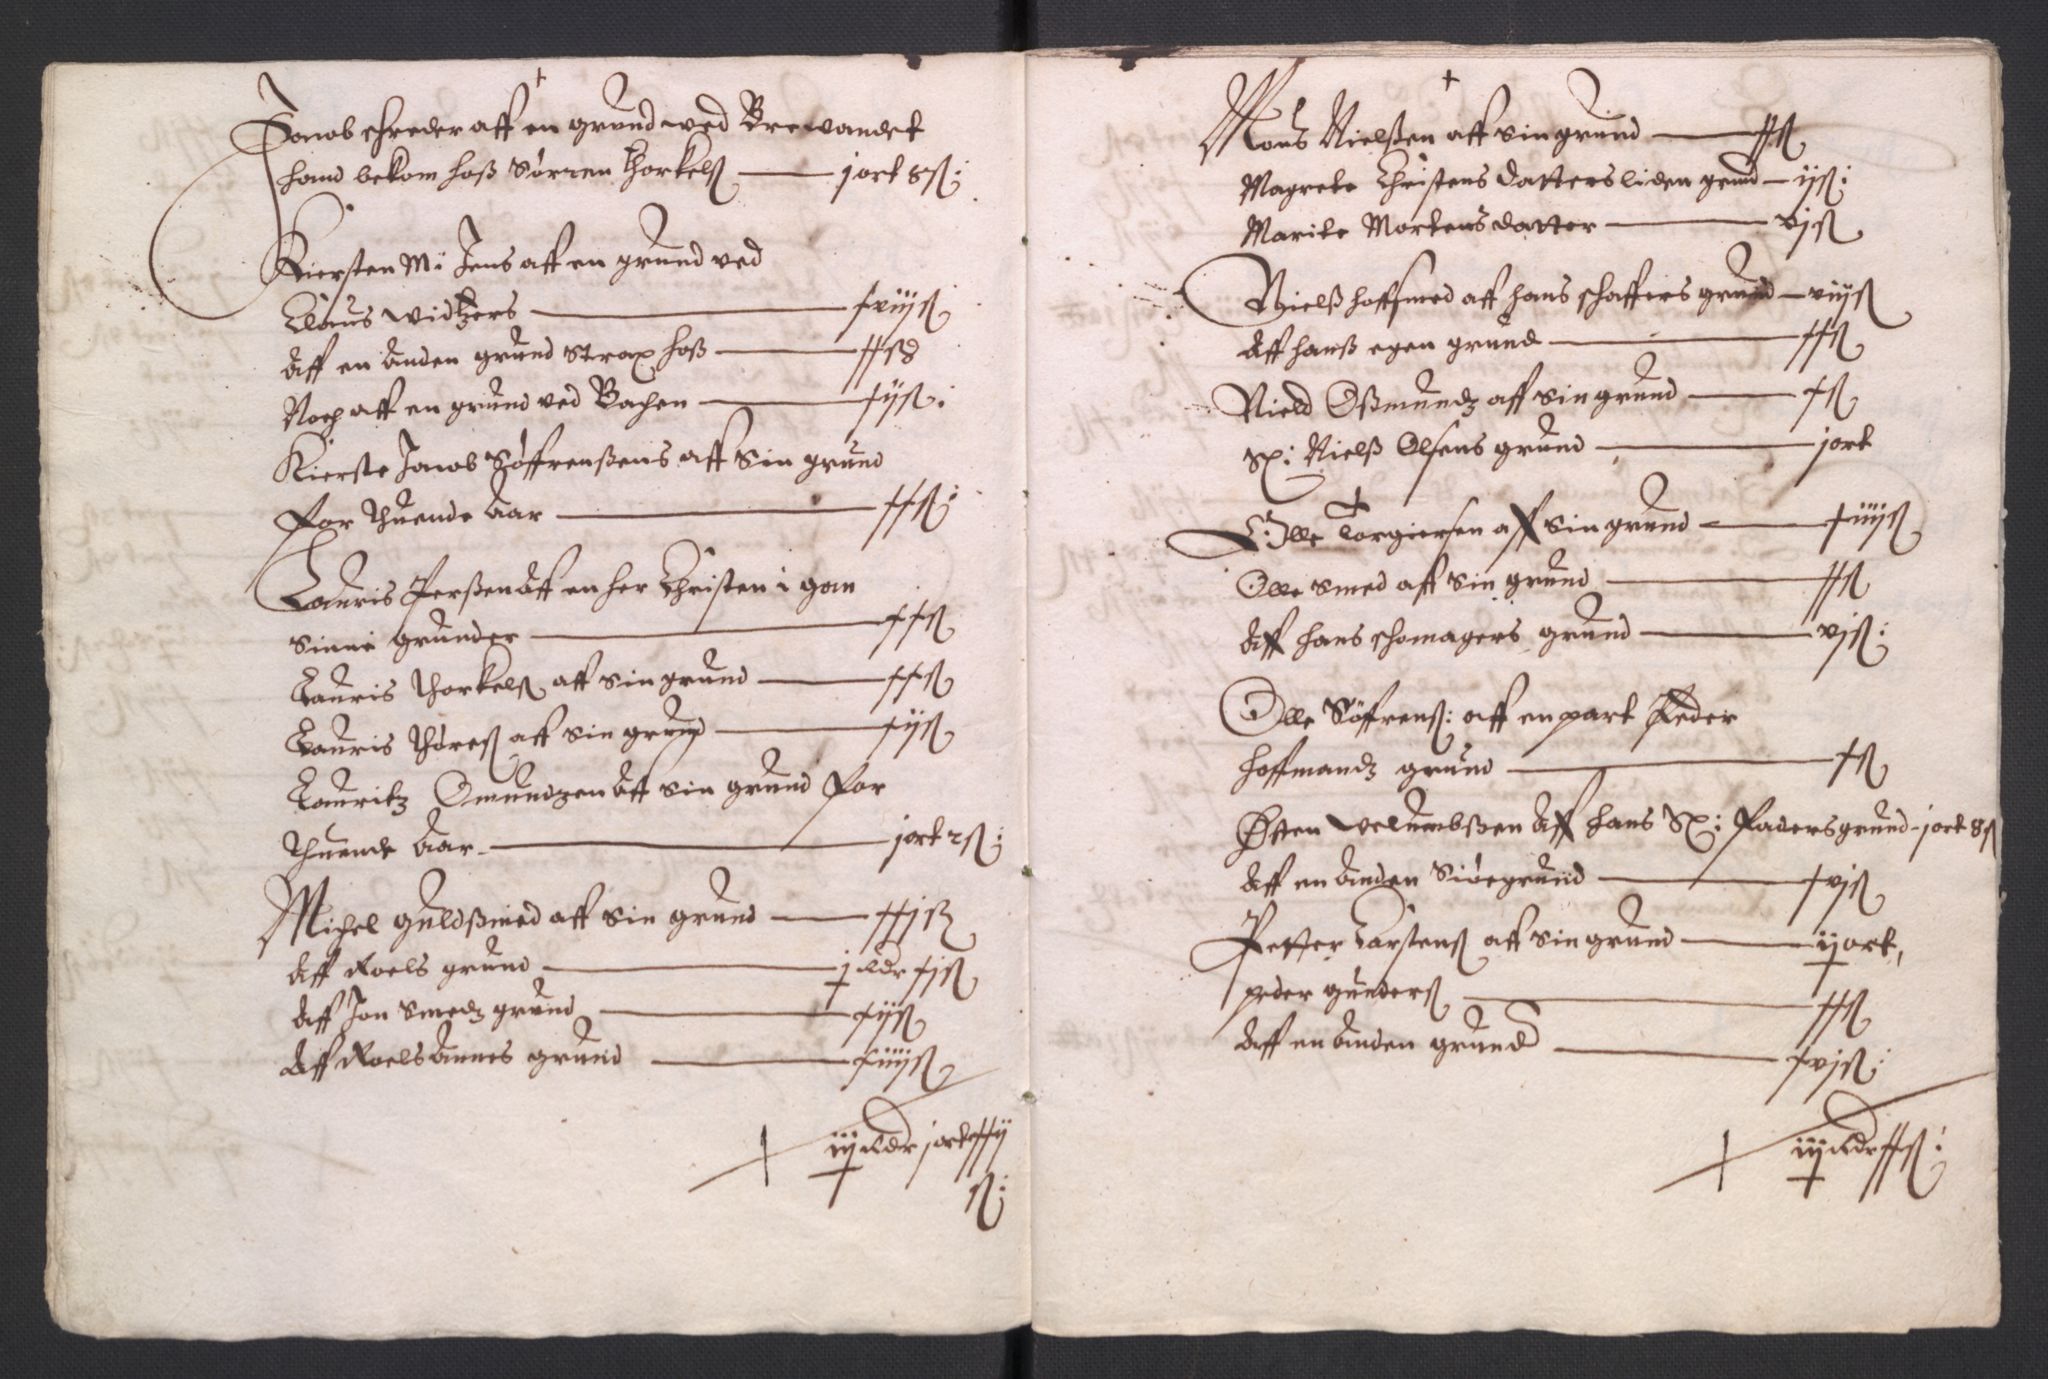 Jacob schreder aff en grund wed Brewandet
hand bekom hoß Sørren Thorkelß jort 8 ß:
Kiersten Mi Jens aff en grund ved
Claus widtzers xviij ß
Aff en anden grund strax hoß xx ß 8
Noch aff en grund ved Bachen xij ß:
Kierste Jacob Søffrenßens aff Sin grund
for thuende Aar xx ß:
Lauris Perßen Aff en her Christen i gon
Sinne grunder xx ß
Lauris Thorkelß aff Sin grund xx ß
Lauris Thoreß aff Sin grund xij ß
Lauritz Omundzen Aff Sin grund for
thuende Aar jort 2 ß:
Michel guldßmed aff Sin grund xxj ß
Aff Roels grund j rdr xj ß
Aff Jon Smedz grund xij ß
Aff Roels Annes grund xiiij ß
iiij rdr jort xxij
ß:
Mons Nielßen aff Sin grund xx ß
Magrete Christens datters liden grund ij ß:
Marite Mortens datter vj ß
Nielß hoffsmed aff hans schaffers grund viij ß
Aff hanß egen grund xx ß
Nield Oßmundz aff Sin grund x ß
Sx: Nielß Olsens grund jort
Olle Torgiersen aff Sin grund xiiij ß
Olle Smed aff Sin grund xx ß
Aff hans schomagers grund vj ß:
Olle Søffrenß: aff en part Peder
hoffmandz grund x ß
Østen velumbßen Aff hans Sx: faders grund jort 8 ß
Aff en anden Siøegrund xvj ß
Petter Carstenß aff Sin grund ij ort,
peder gunderß xx ß
Aff en anden grund xvj ß:
iiij rdr xx ß: